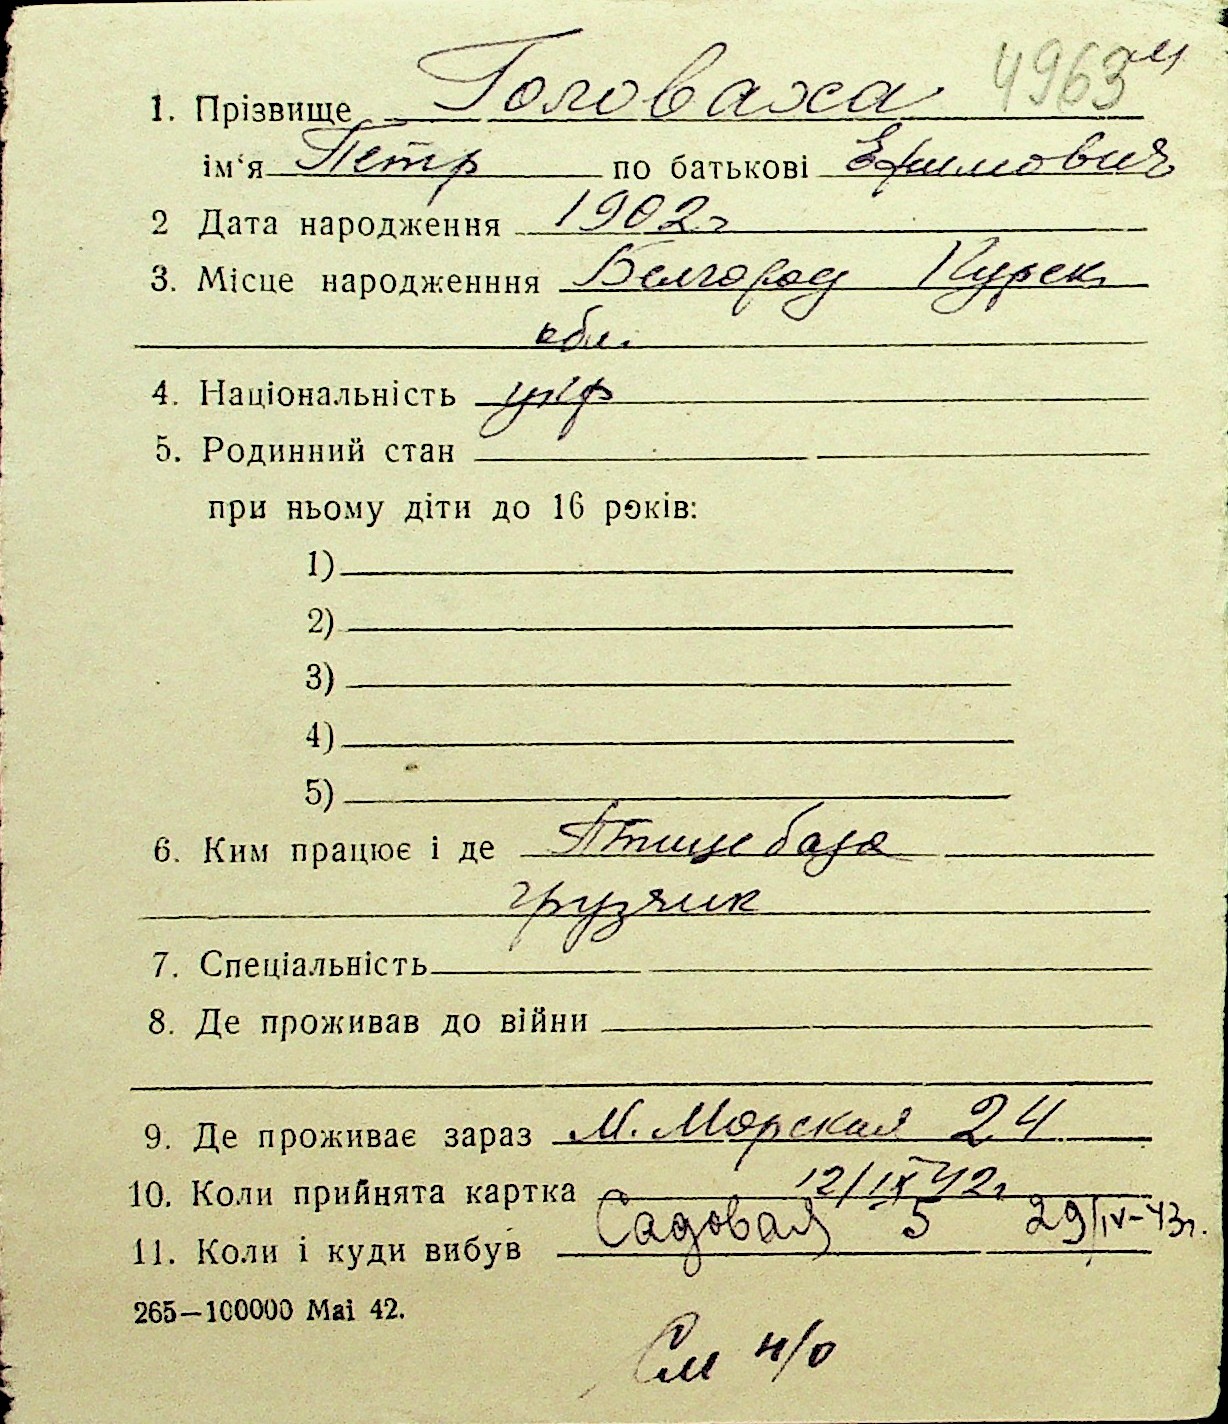 4963 м
1. Прізвище Головаха
ім'я Петр по батькові Ефимович
2 Дата народження 1902 г
3. Місце народженння Белгород Курск.
обл.
4. Національність укр
5. Родинний стан
при ньому діти до 16 років:
1)
2)
3)
4)
5)
6. Ким працює і де Птице база
грузчик
7. Спеціальність
8. Де проживав до війни
9. Де проживає зараз М. Морская 24
10. Коли прийнята картка 12/IX 42г
11. Коли і куди вибув Садовая 5 29/IV-43г.
265—100000 Маі 42.
См н/о